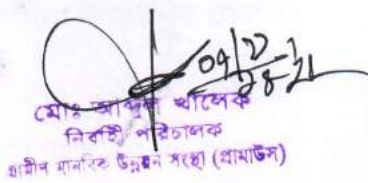 মোঃ আব্দুল খালেক
নির্বাহী পরিচালক
গ্রামীন মানবিক উন্নয়ন সংস্থা (গ্রামাউস)